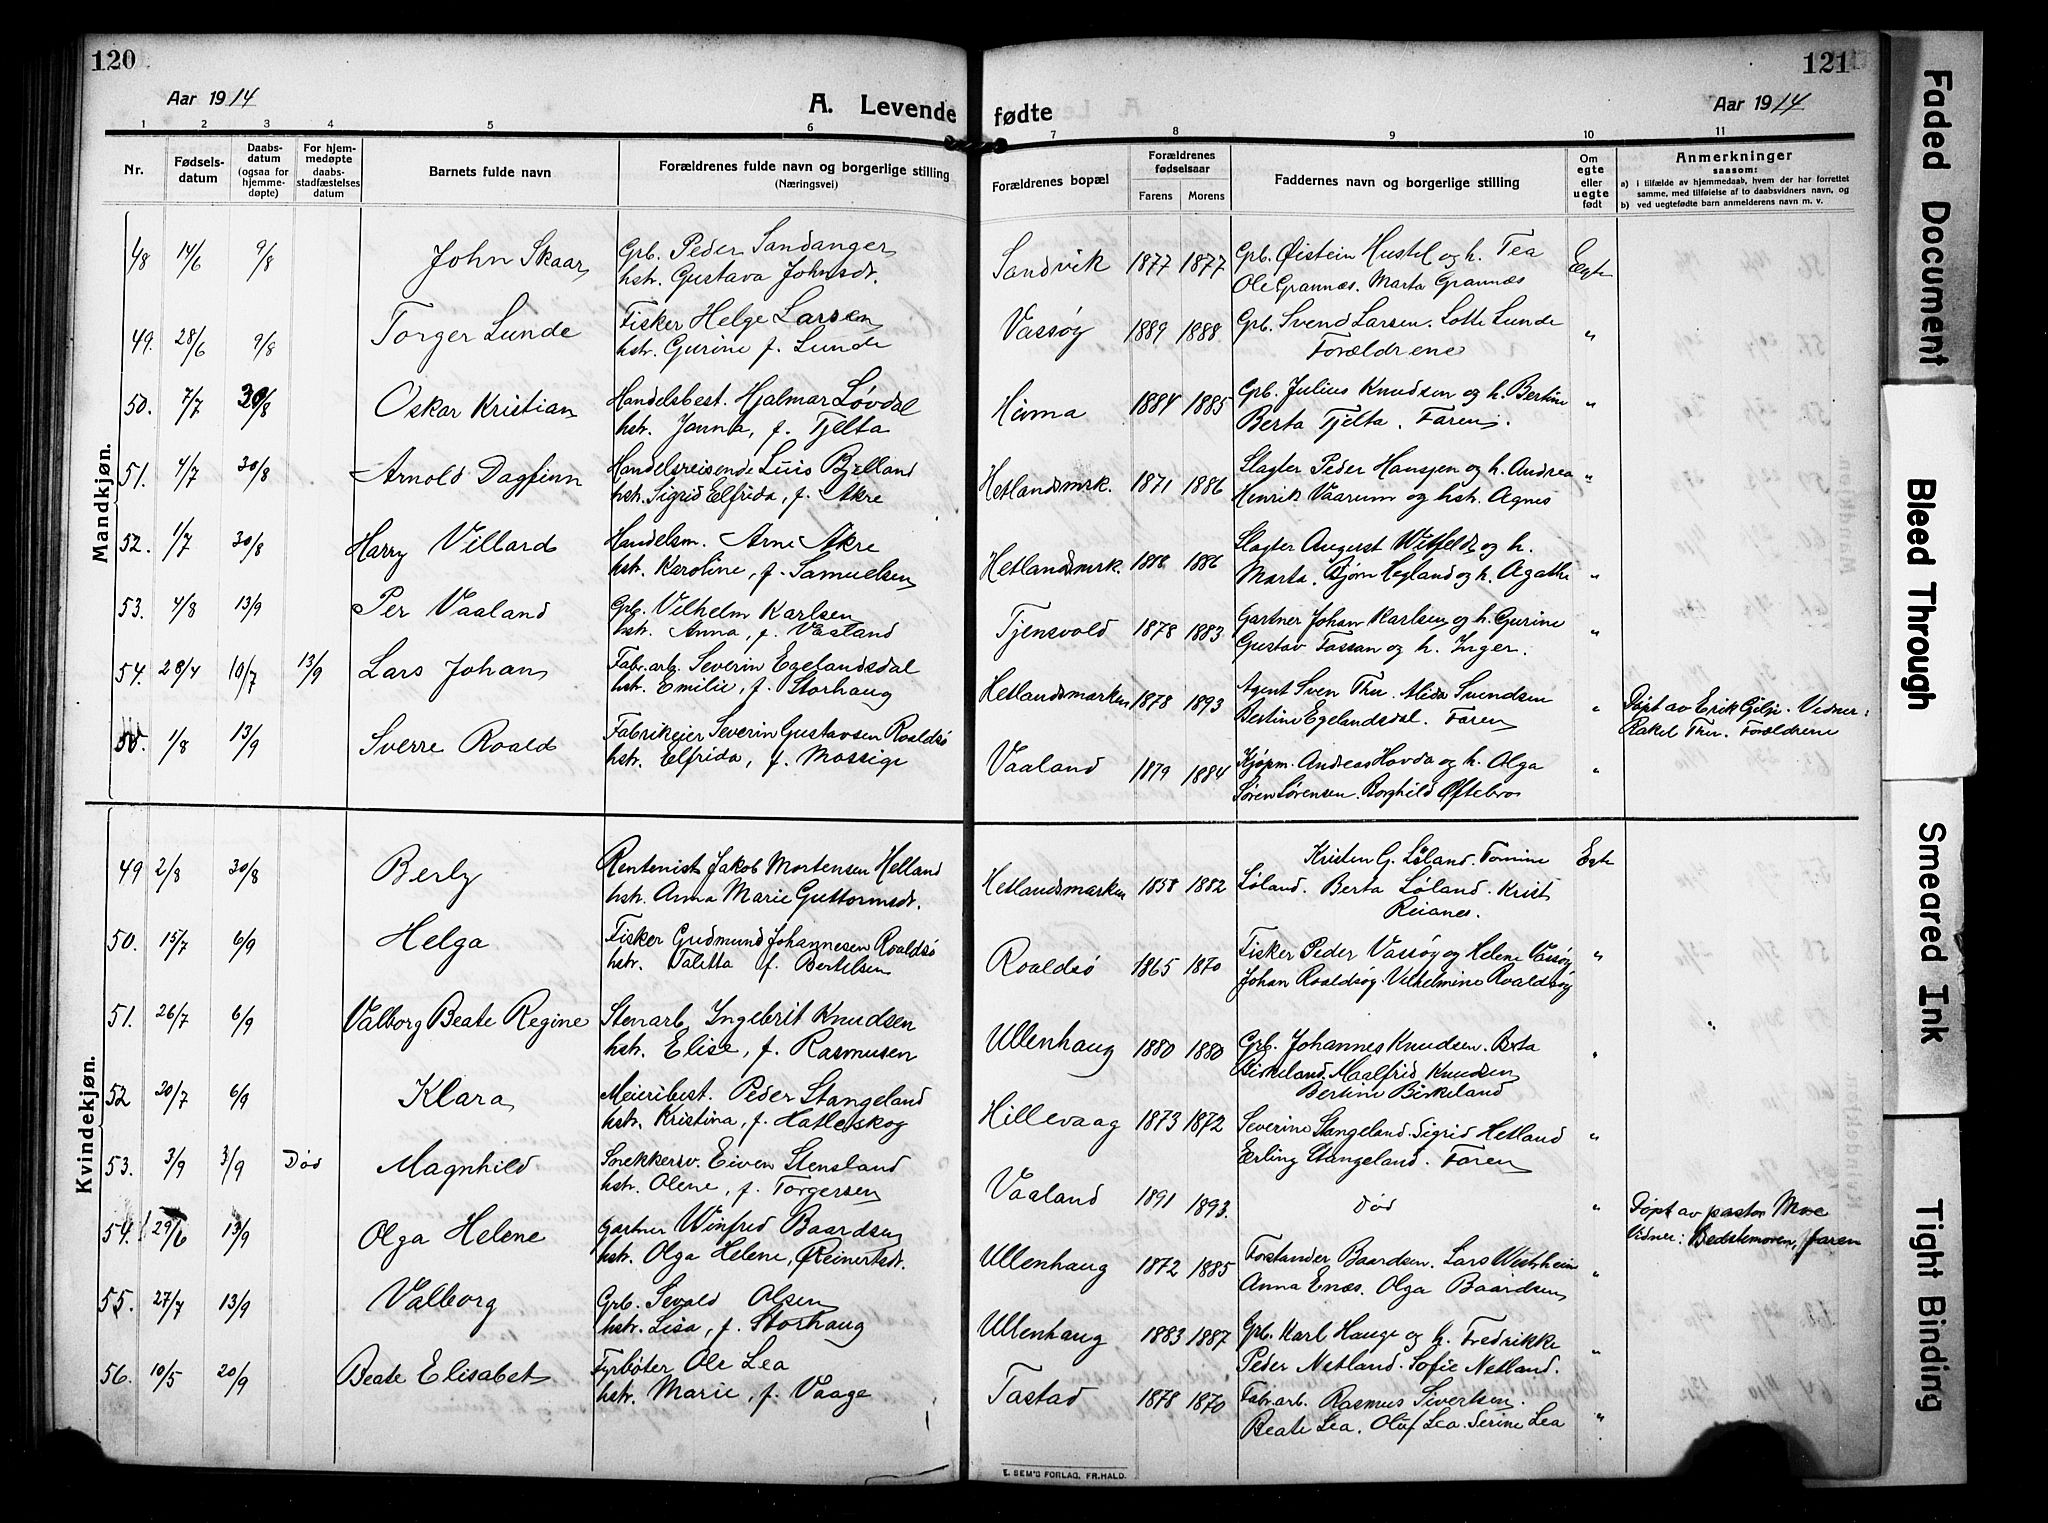 120
121
Aar 1914
A. Levende fødte
Aar 1914
1 2 3 4 5 6 7 8 9 10 11
Nr.
Fødsels-
datum
Daabs-
datum
(ogsaa for
hjemme-
døpte)
For hjem-
medøpte
daabs-
stadfæstelses
datum
Barnets fulde navn
Forældrenes fulde navn og borgerlige stilling
(Næringsvei)
Forældrenes bopæl
Forældrenes
fødselsaar
Farens Morens
Faddernes navn og borgerlige stilling
Om
egte
eller
uegte
født
Anmerkninger
saasom:
a) i tilfælde av hjemmedaab, hvem der har forrettet
samme, med tilføielse af to daabsvidners navn, og
b) ved uegtefødte barn anmelderens navn m. v.
Mandkjøn.
48 14/6 9/8 John Skaar Grb. Peder Sandanger Sandvik 1877 1877 Grb. Øistein Hustel og h. Tea Egte
hstr. Gustava Johnsdt. Ole Grannæs. Marta Grannæs
49. 28/6 9/8 Torger Lunde Fisker Helge Larsen Vassøy 1889 1888 Grb. Svend Larsen. Lotte Lunde "
hstr. Gurine f. Lunde Forældrene
50. 7/7 30/8 Oskar Kristian Handelsbest. Hjalmar Løvdal Hinna 1884 1885 Grb. Julius Knudsen og h. Bertine "
hstr. Janna, f. Tjelta Berta Tjelta. Faren.
51. 4/7 30/8 Arnold Dagfinn Handelsreisende Luis Bjelland Hetlandsmrk. 1871 1886 Slagter Peder Hansen og h. Andrea "
hstr. Sigrid Elfrida, f. Akre Henrik Vaarum og hstr. Agnes
52. 1/7 30/8 Harry Villard Handelsm. Arne Akre Hetlandsmrk. 1886 Slagter August Witfeldt og h.
hstr. Karoline, f. Samuelsen Marta. Bjørn Hegland og h. Agathe "
53. 4/8 13/9 Per Vaaland Grb. Vilhelm Karlsen Tjensvold 1878 1883 Gartner Johan Karlsen og h. Gurine "
hstr. Anna, f. Vaaland Gustav Tassan og h. Inger.
54. 28/4 10/7 13/9 Lars Johan Fabr.arb. Severin Egelandsdal Hetlandsmarken 1878 1893 Agent Sven Thu. Alida Svendsen " Døpt av Erik Gilje. Vidner:
hstr. Emilie, f. Storhaug Bertine Egelandsdal. Faren Rakel Thu. Forældrene
55. 1/8 13/9 Sverre Roald Fabrikeier Severin Gustavsen Roaldsø Vaaland 1879 1884 Kjøpm. Andreas Hovda og h. Olga "
hstr. Elfrida, f. Mossige Søren Sørensen. Borghild Øftebro
Kvindekjøn.
49 2/8 30/8 Berly Rentenist Jakob Mortensen Helland Hetlandsmarken 1858 1882 Kristen G. Löland. Tomine Egte
hstr. Anna Marie Guttormsdt. Löland. Berta Löland. Krist
Reianes.
50. 15/7 6/9 Helga Fisker Gudmund Johannesen Roaldsø Roaldsö 1865 1870 Fisker Peder Vassøy og Helene Vassøy "
hstr. Talitta f. Bertelsen Johan Roaldsøy. Vilhelmine Roaldsøy
51. 26/7 6/9 Valborg Beate Regine Stenarb. Ingebrit Knudsen Ullenhaug 1880 1880 Grb. Johannes Knudsen. Berta " "
hstr. Elise, f. Rasmusen Birkeland. Maalfrid Knudsen
Bertine Birkeland
52 20/7 6/9 Klara Meieribest. Peder Stangeland Hillevaag 1873 1872 Severine Stangeland. Sigrid Hetland "
hstr. Kristina, f. Hatleskog Erling Stangeland. Faren
53. 3/9 3/9 Død Magnhild Snekkersv. Eiven Stensland Vaaland 1891 1893. Død "
hstr. Olene, f. Torgersen Døpt av pastor Moe
Vidner: Bedstemoren, faren
54. 29/6 13/9 Olga Helene Gartner Winfred Baardsen Ullenhaug 1872 1885 Forstander Baardsen. Lars Westrheim "
hstr. Olga Helene, Reinertsdt. Anna Enæs. Olga Baardsen
55. 27/7 13/9 Valborg Grb. Sevald Olsen Ullenhaug 1883 1887 Grb. Karl Hauge og h. Fredrikke "
hstr. Lisa, f. Storhaug Peder Netland. Sofie Netland.
56. 10/5 20/9 Beate Elisabet Fyrbøter Ole Lea Tastad 1878 1870 Fabr.arb. Rasmus Sivertsen. "
hstr. Marie, f. Vaage Beate Lea. Oluf Lea. Serine Lea
E. SEM'S FORLAG, FR.HALD.
Faded Document
Bleed Through
Smeared Ink
Tight Binding